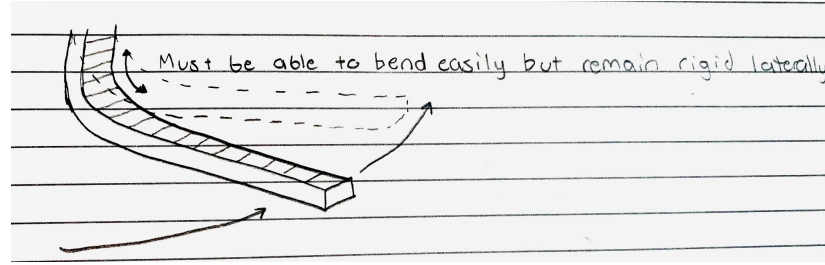 Must be able to bend easily but remain rigid laterally